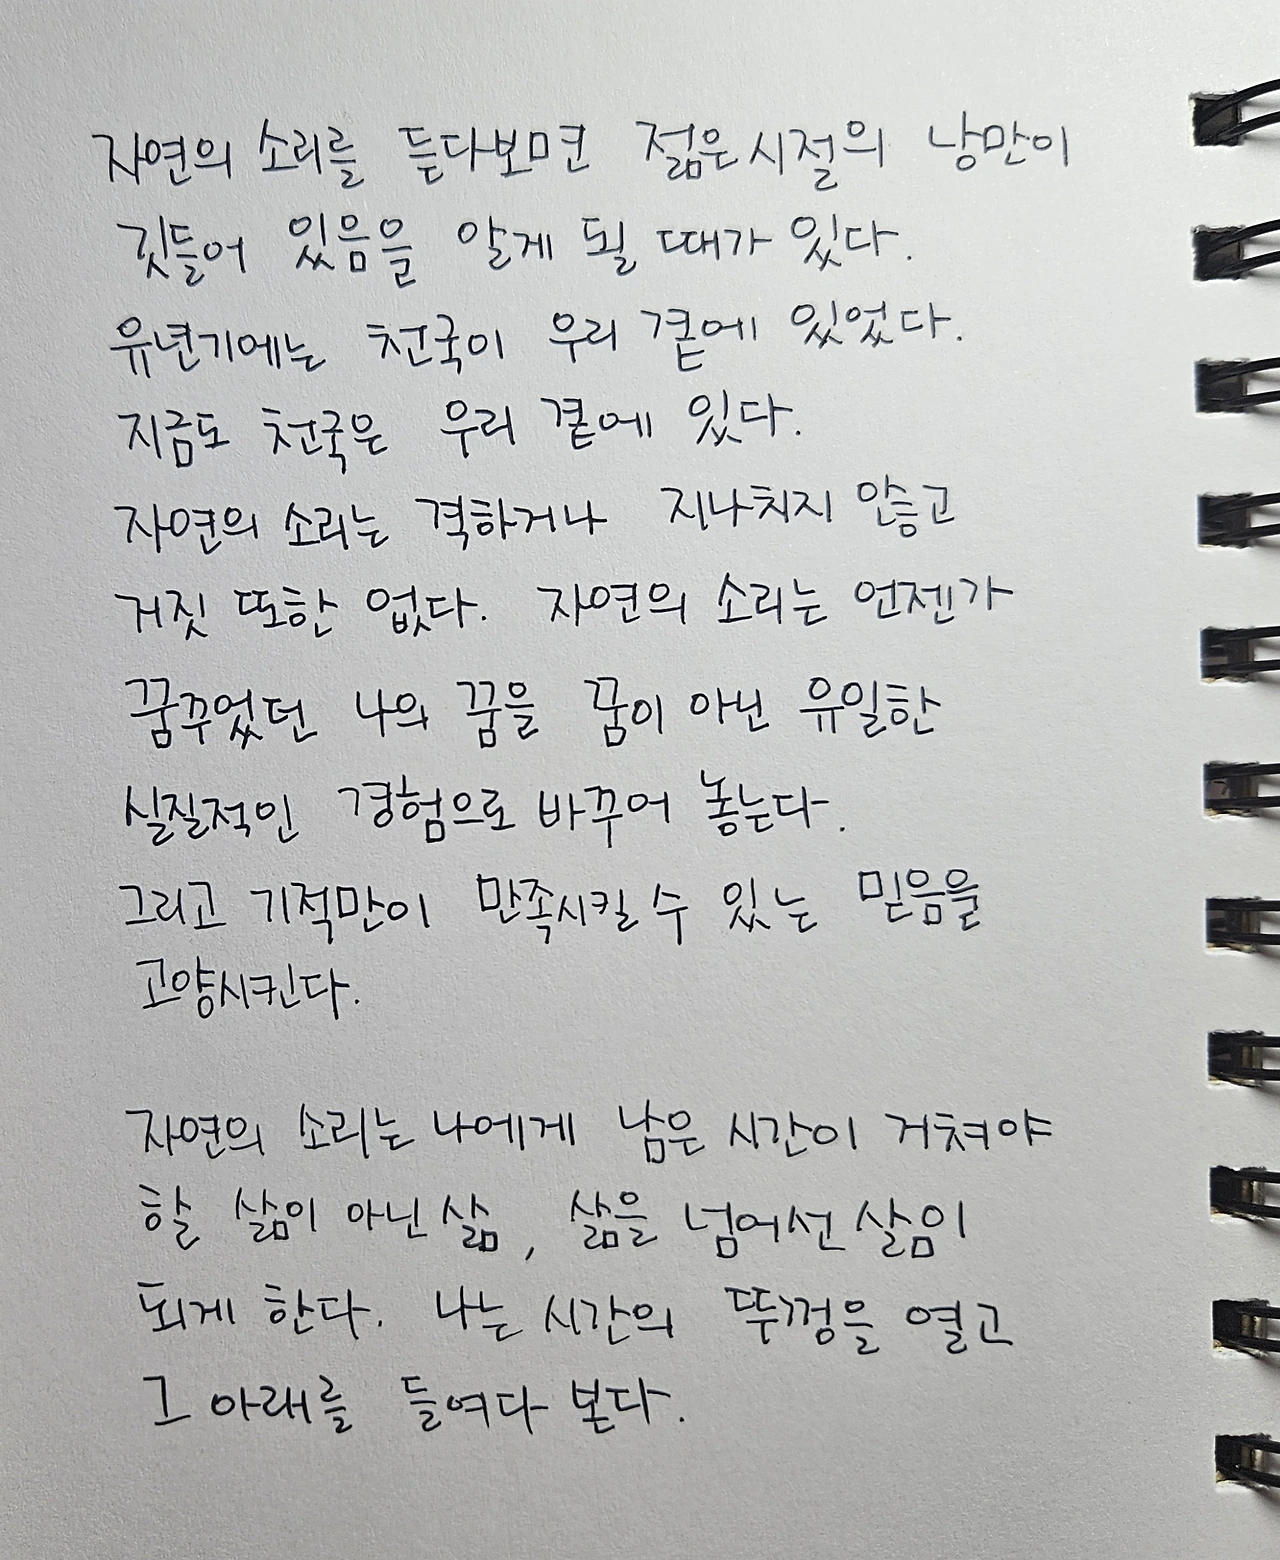 자연의 소리를 듣다보면 젊은시절의 낭만이
깃들어 있음을 알게 될 때가 있다.
유년기에는 천국이 우리 곁에 있었다.
지금도 천국은 우리 곁에 있다.
자연의 소리는 격하거나 지나치지 안흥고
거짓 또한 없다. 자연의 소리는 언젠가
꿈꾸었던 나의 꿈을 꿈이 아닌 유일한
실질적인 경험으로 바꾸어 놓는다.
그리고 기적만이 만족시킬 수 있는 믿음을
고양시킨다.
자연의 소리는 나에게 남은 시간이 거쳐야
할 삶이 아닌 삶, 삶을 넘어선 삶이
되게 한다. 나는 시간의 뚜껑을 열고
그 아래를 들여다 본다.